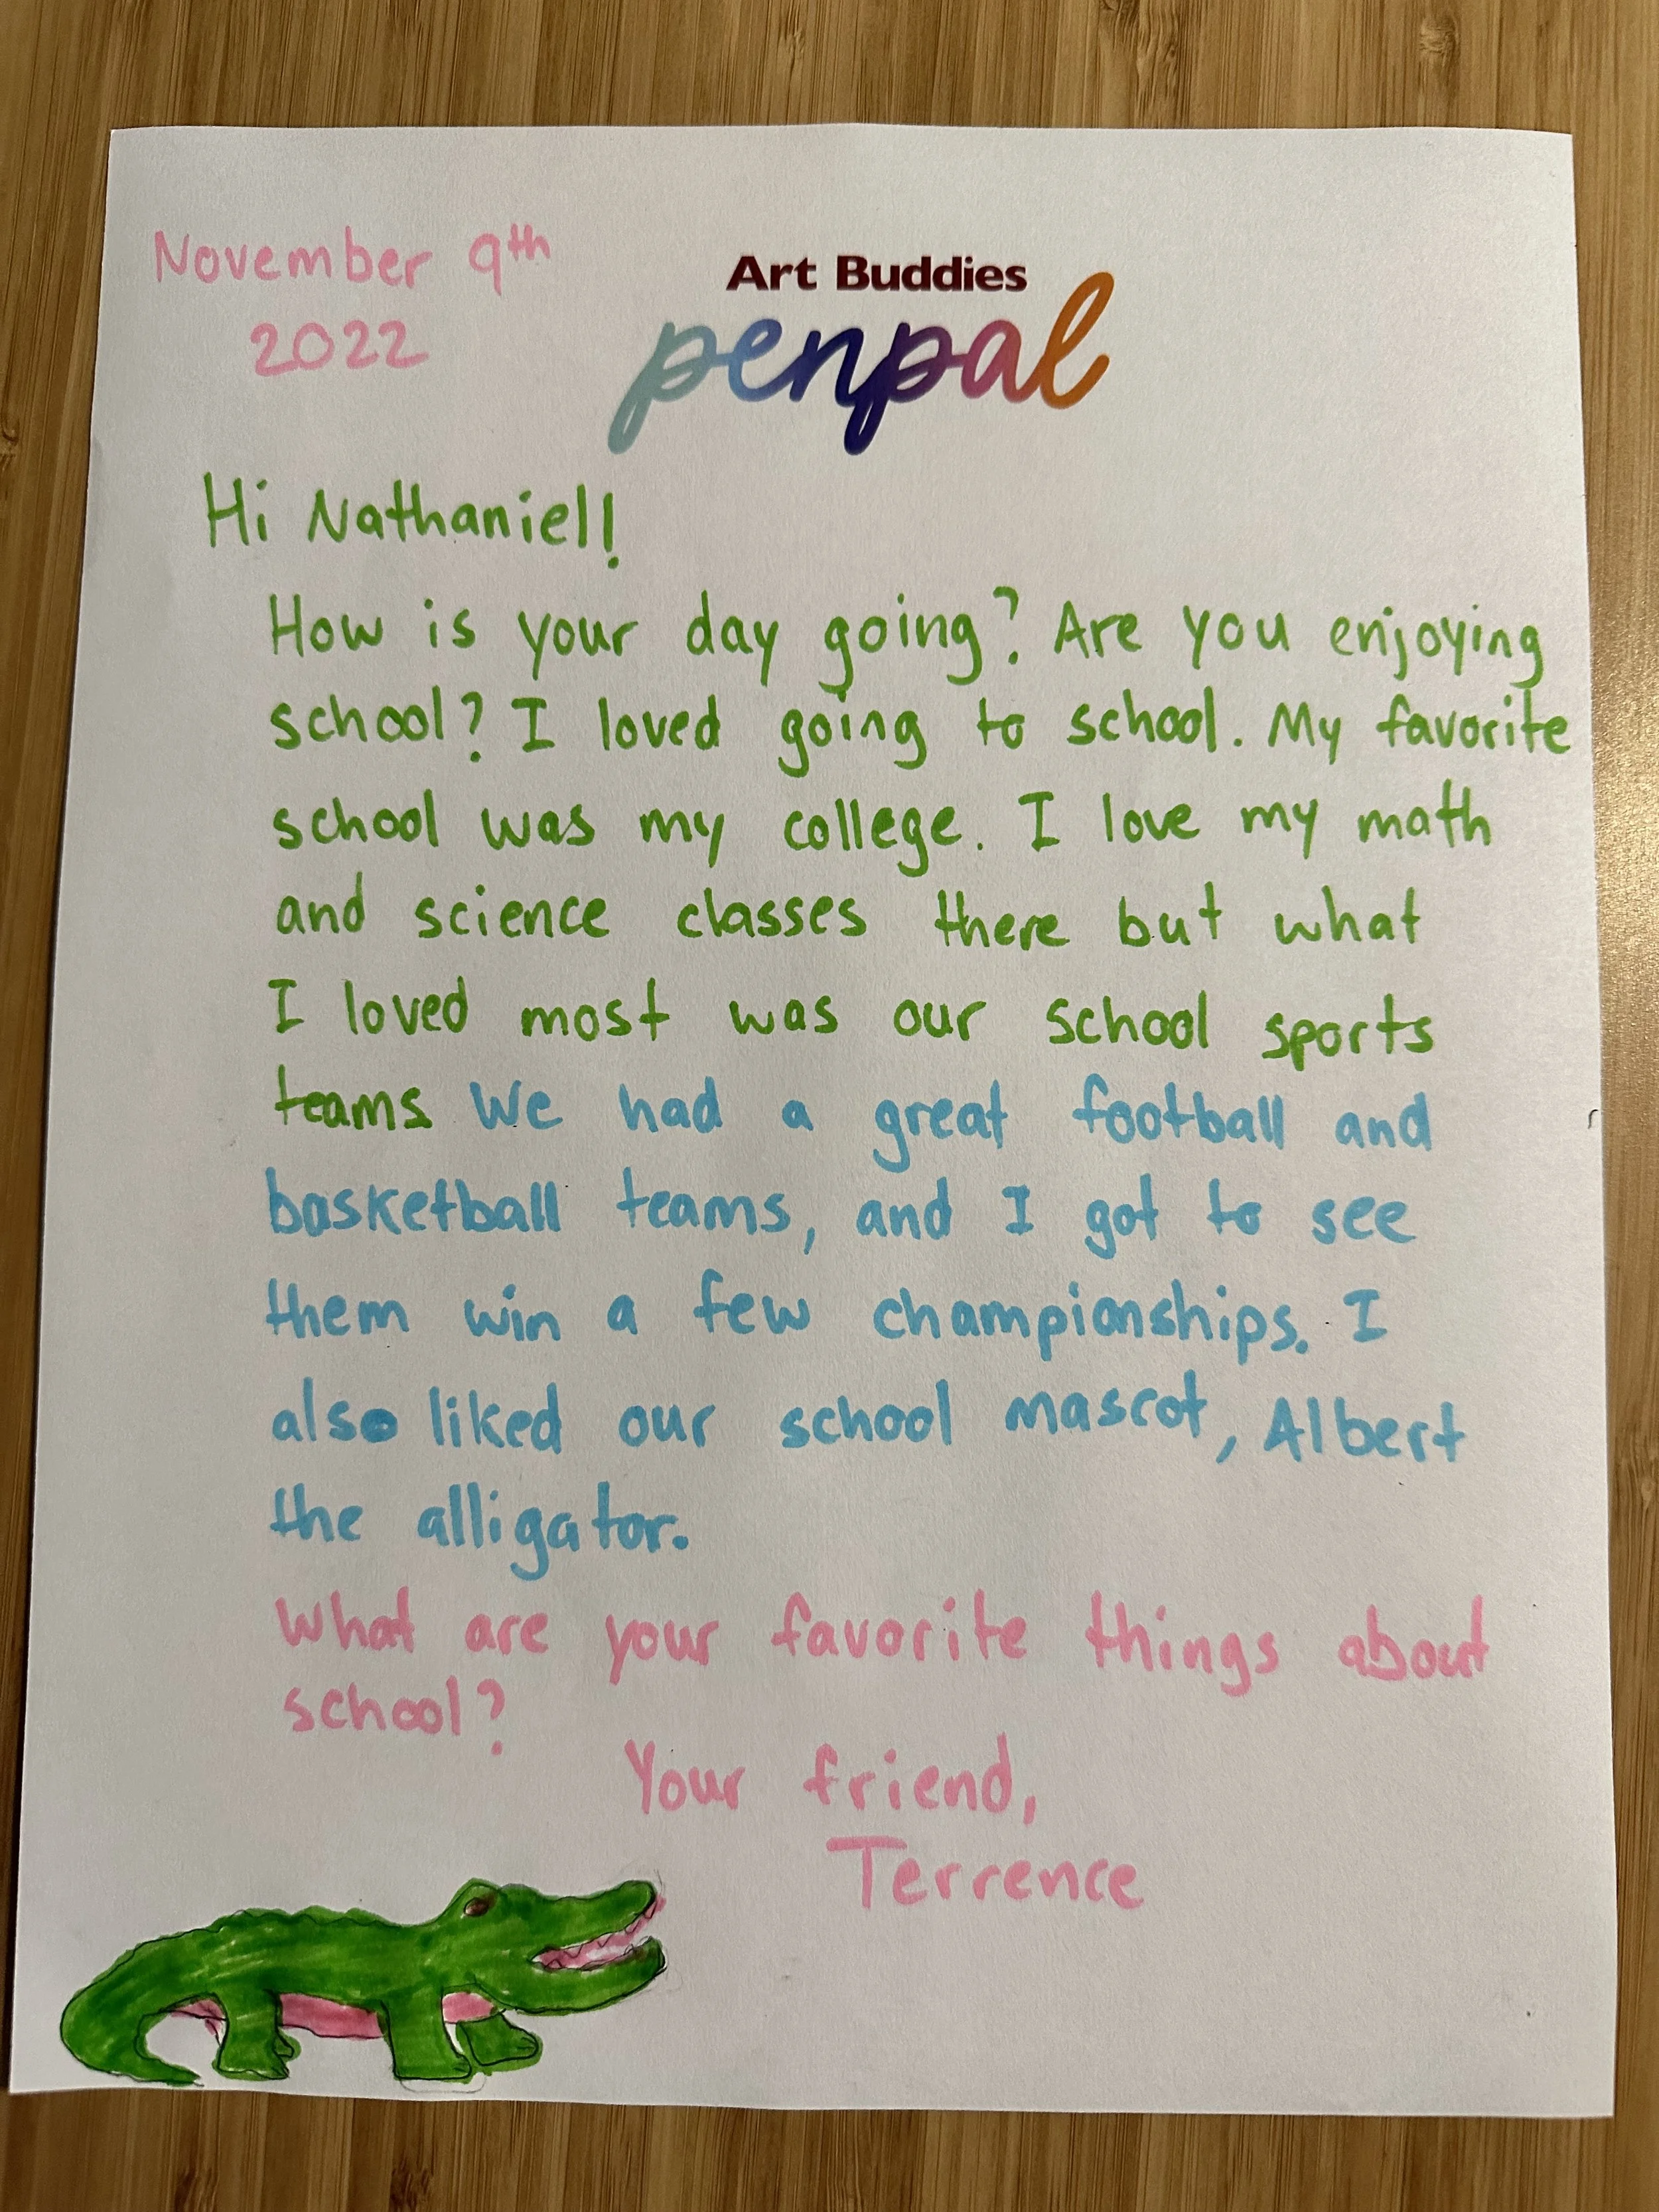 November 9th
2022
Art Buddies
penpal
Hi Nathaniel!
How is your day going? Are you enjoying
school? I loved going to school. My favorite
school was my college. I love my math
and science classes there but what
I loved most was our school sports
teams We had a great football and
basketball teams, and I got to see
them win a few championships. I
also liked our school mascot, Albert
the alligator.
What are your favorite things about
school?
Your friend,
Terrence